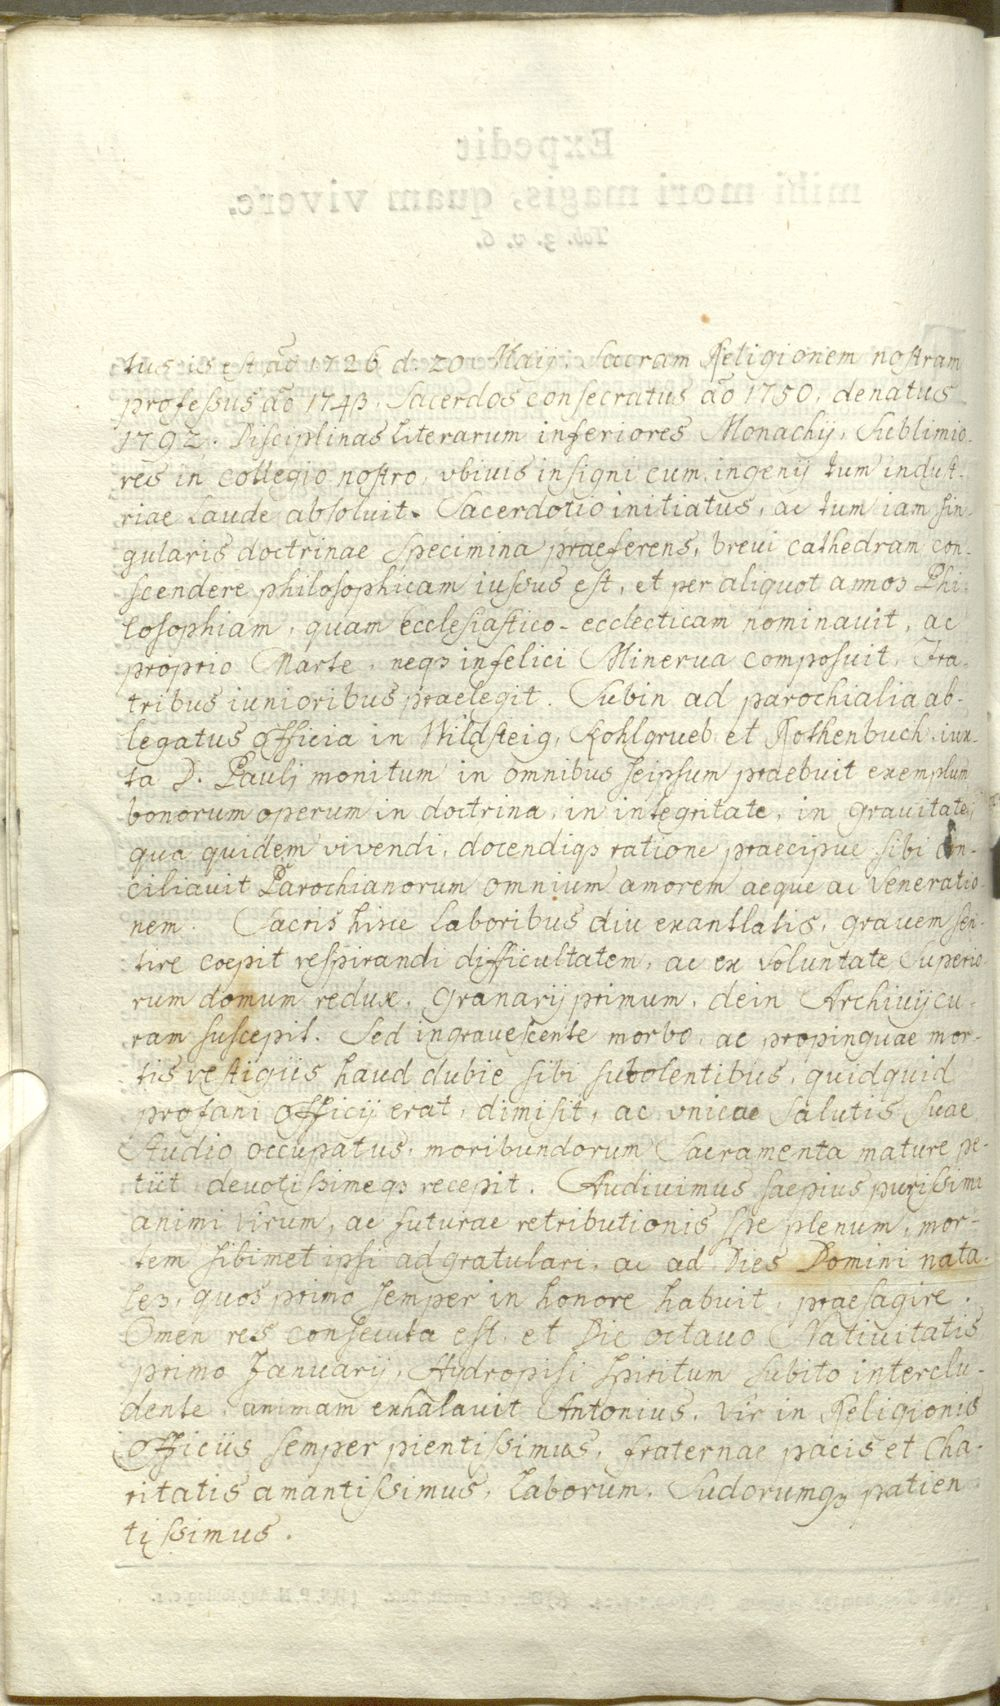 tus is est aõ 1726 d. 20 Maij. Sacram Religionem nostram
professus aõ 1743. Sacerdos consecratus aõ 1750, denatus
1792. Disciplinas literarum inferiores Monachij, Sublimio-
res in collegio nostro, vbiuis insigni cum ingenij tum indust-
riae laude absoluit. Sacerdotio initiatus, ac tum iam sin-
gularis doctrinae specimina praeferens, breui cathedram con-
scendere philosophicam iussus est, et per aliquot annos Phi-
losophiam, quam ecclesiastico-ecclecticam nominauit, ac
proprio Marte, neqz infelici Minerua composuit, Fra-
tribus iunioribus praelegit. Subin ad parochialia ab-
legatus officia in Wildsteig, Kohlgrueb et Rothenbuch iux-
ta D. Pauli monitum in omnibus seipsum praebuit exemplum
bonorum operum in doctrina, in integritate, in grauitate,
qua quidem vivendi, docendiqz ratione praecipue sibi con-
ciliauit Parochianorum omnium amorem aeque ac veneratio-
nem. Sacris hisce laboribus diu exantlatis, grauem sen-
tire coepit respirandi difficultatem, ac ex voluntate Superio-
rum domum redux, Granarij primum, dein Archiuij cu-
ram suscepit. Sed ingrauescente morbo, ac propinquae mor-
tis vestigiis haud dubie sibi subolentibus, quidquid
profani officij erat, dimisit, ac vnicae salutis suae
studio occupatus, moribundorum Sacramenta mature pe-
tiit devotissimeqz recepit. Audiuimus saepius purissimi
animi virum, ac futurae retributionis spe plenum, mor-
tem sibimet ipsi adgratulari, ac ad Dies Domini nata-
les, quos primo semper in honore habuit, praesagire.
Omen res consecuta est, et Die octauo Natiuitatis
primo Januarij, Hydropisi spiritum subito interclu-
dente, animam exhalauit Antonius, Vir in Religionis
officiis semper pientissimus, fraternae pacis et Cha-
ritatis amantissimus, laborum, Sudorumqz patien-
tissimus.